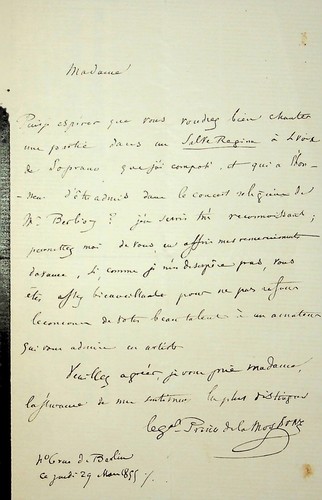 Madame
Puis-je espérer que vous voudrez bien chanter
une partie dans un Salve Regina à 4 voix
de Soprano que j'ai composé, et qui a l'hon-
-neur d'être admis dans le concert religieux de
Mr. Berlioz? j'en serais très reconnaissant;
permettez moi de vous en offrir mes remerciements
d'avance, si comme je n'en désespère pas, vous
êtes assez bienveillante pour ne pas refuser
le concours de votre beau talent à un amateur
qui vous admire en artiste
Veuillez agréer, je vous prie madame,
l'assurance de mes sentiments les plus distingués
le Gal. Prince de la Moskowa
rue de Berlin
ce jeudi 29 Mars 1855